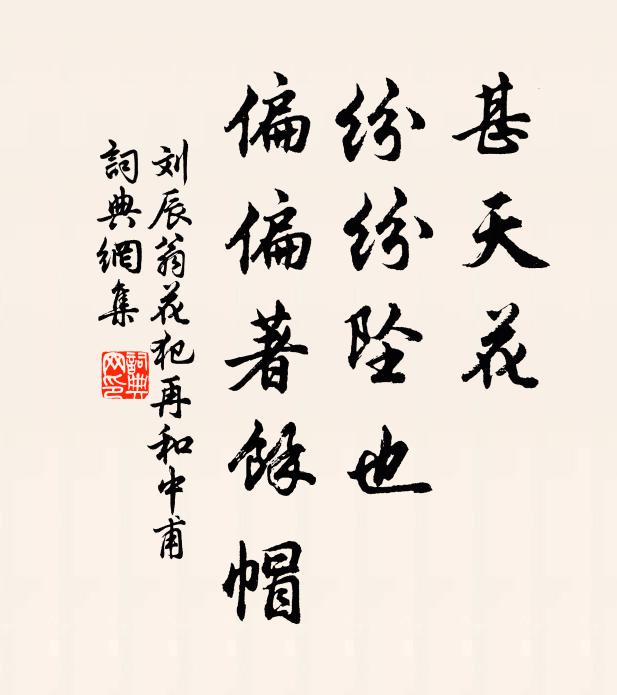 甚天花
纷纷坠也
偏偏著餘帽
刘辰翁花犯再和中甫
詞典網集
詞典
网印